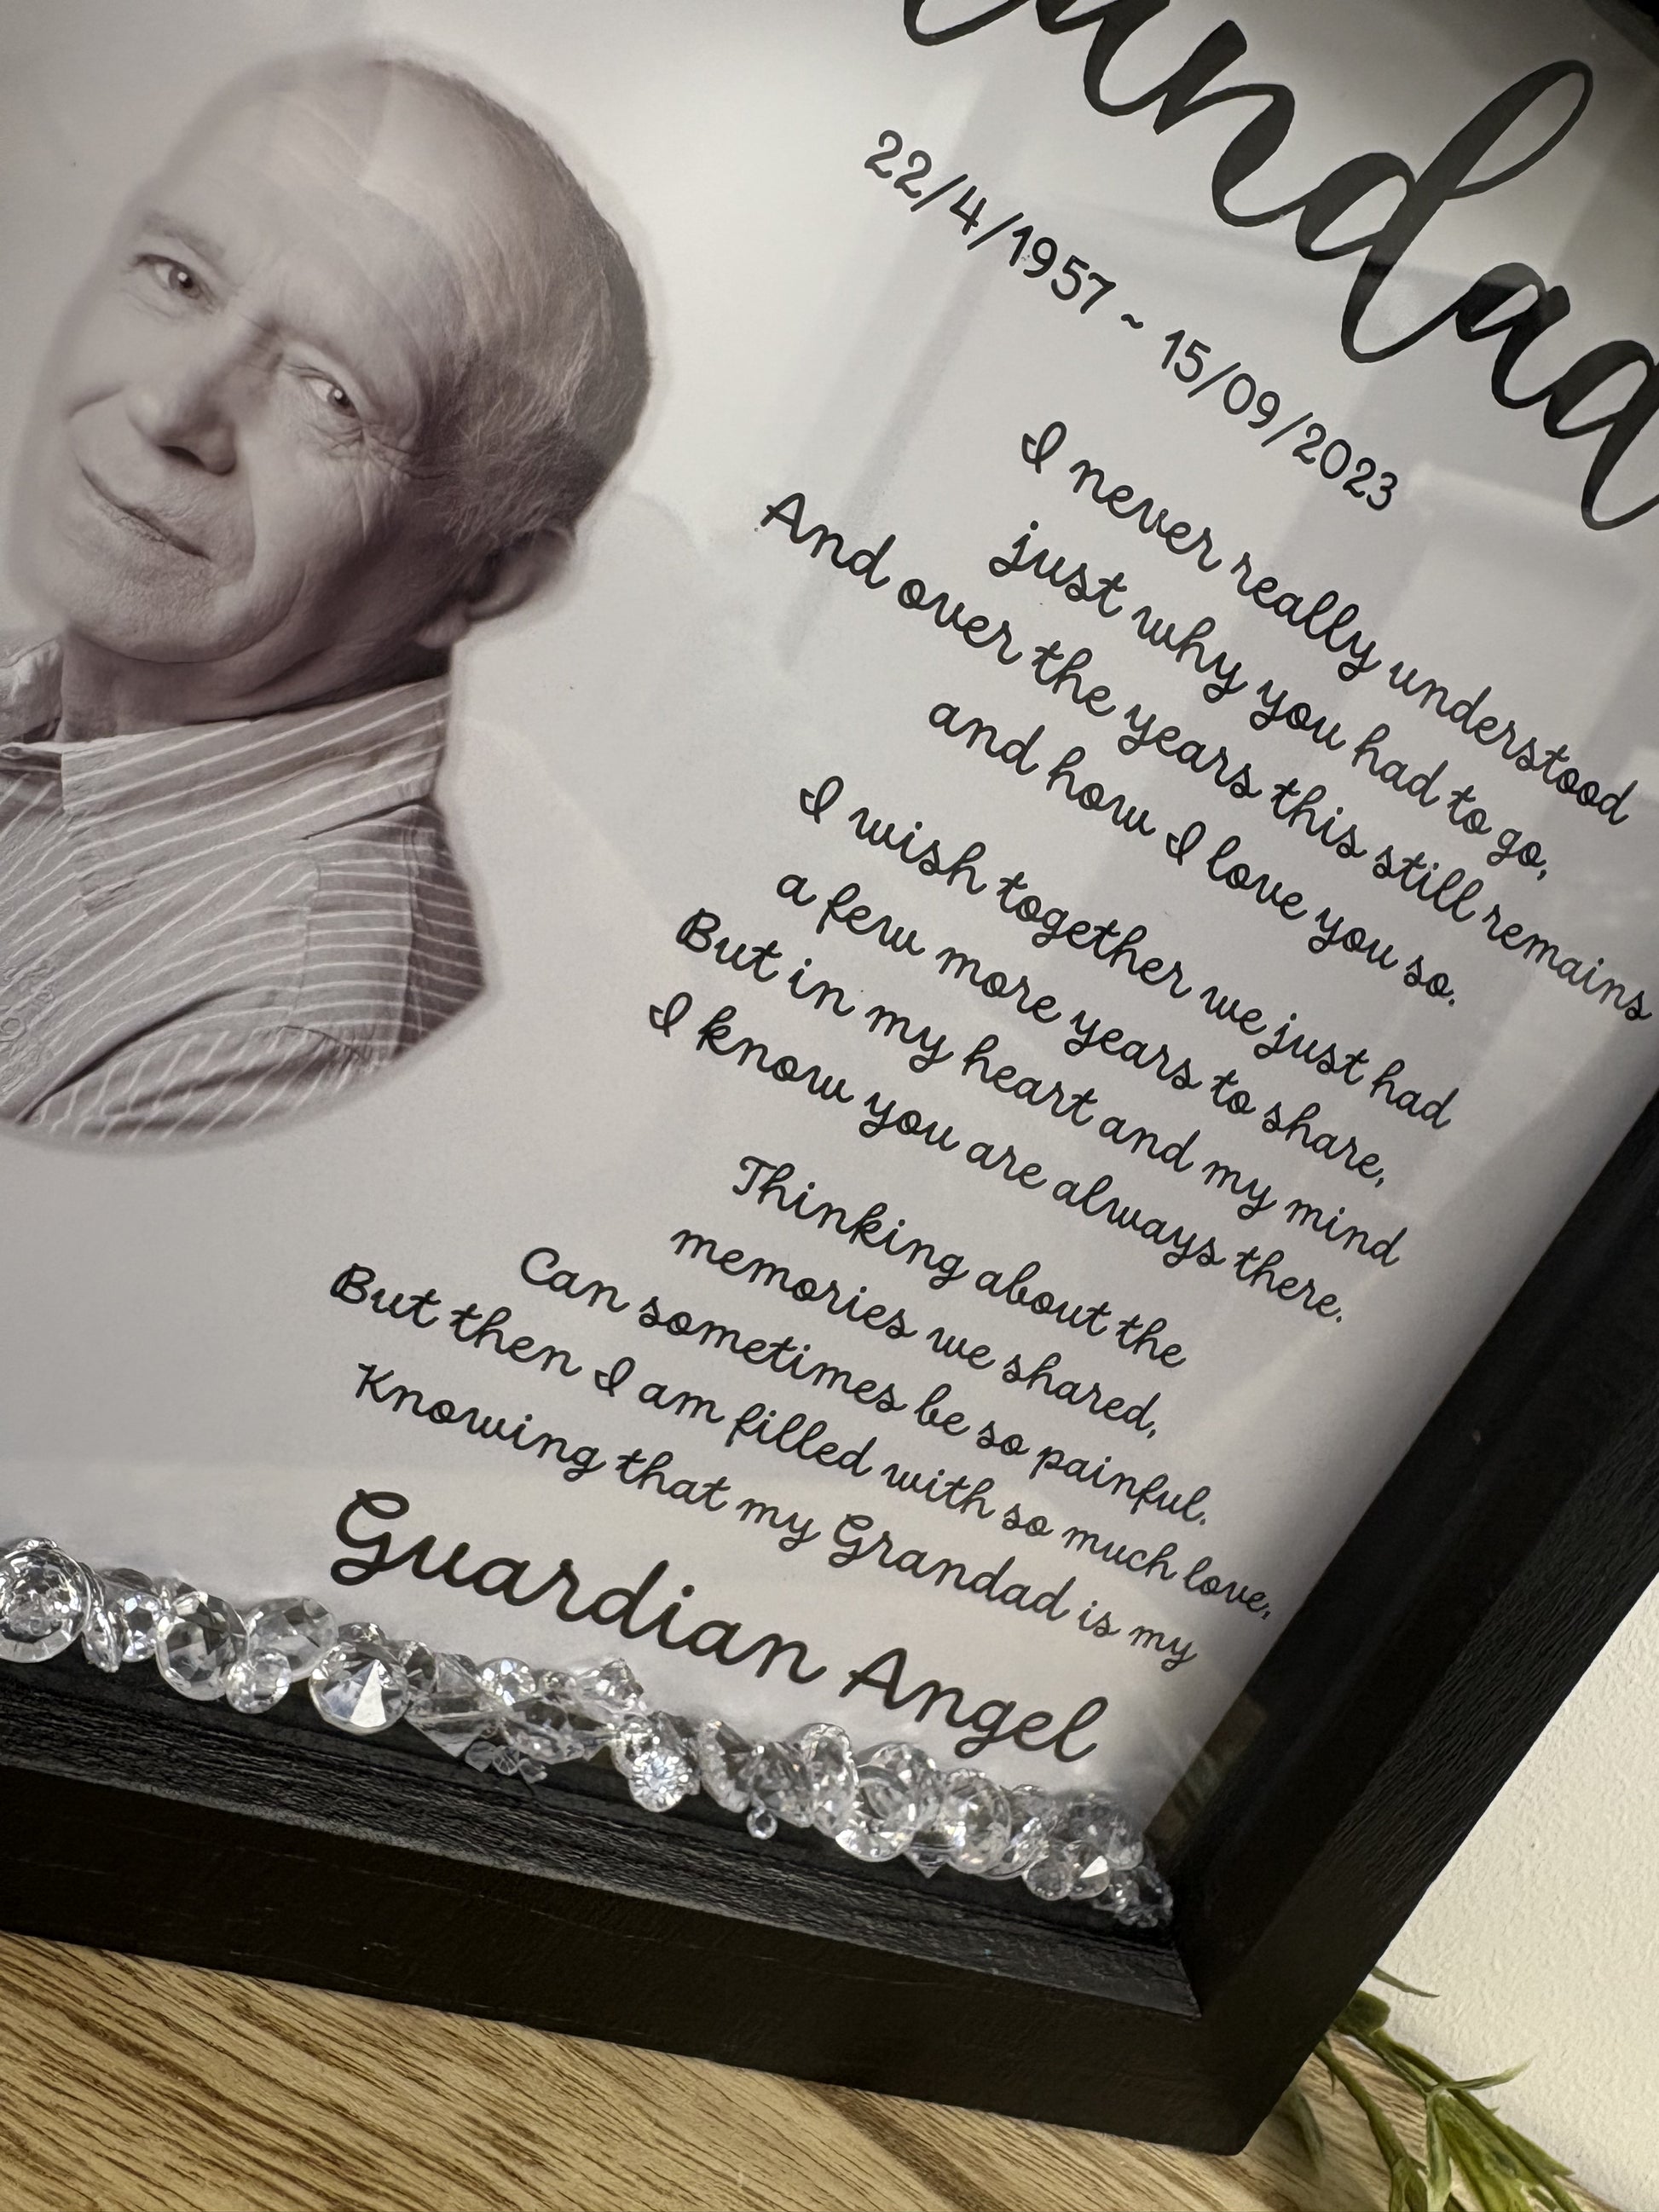 andad
22/4/1957 ~ 15/09/2023
I never really understood
just why you had to go,
And over the years this still remains
and how I love you so.
I wish together we just had
a few more years to share,
But in my heart and my mind
I know you are always there.
Thinking about the
memories we shared,
Can sometimes be so painful.
But then I am filled with so much love,
Knowing that my Grandad is my
Guardian Angel